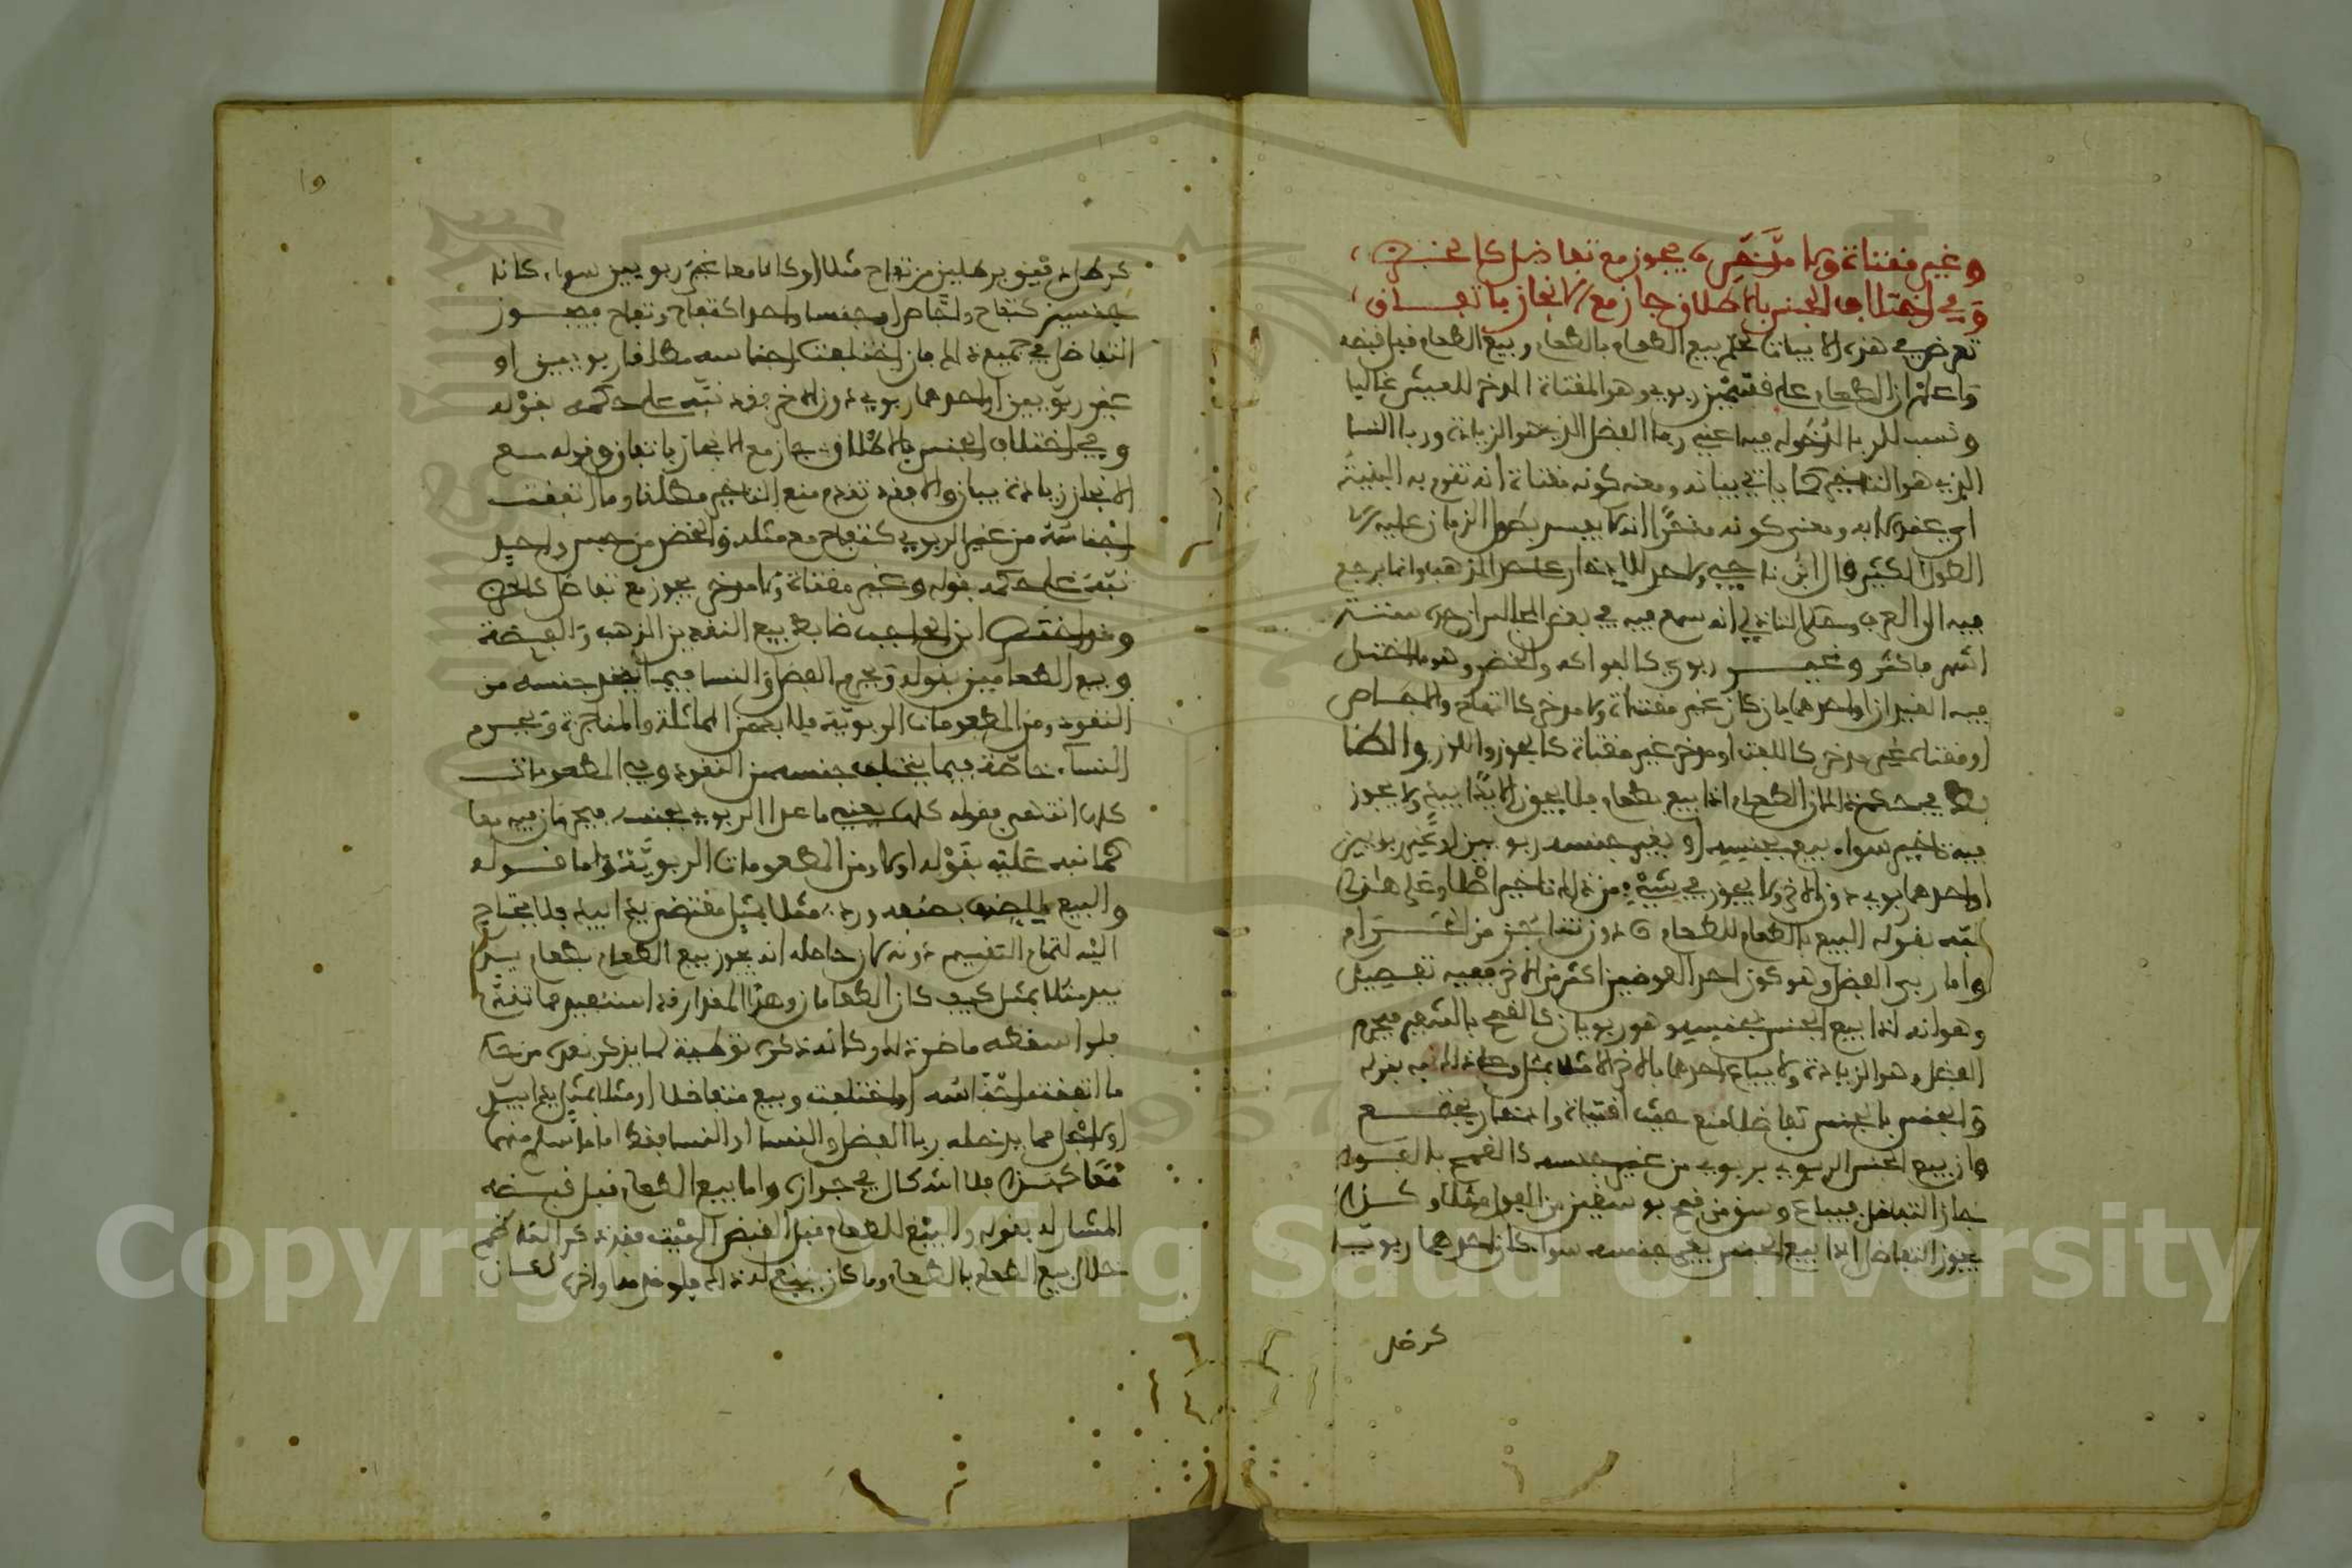 وغير مقتات ولا مدخر يجوز مع تفاضل كالخضر
وفي اختلاف الجنس بالاطلاق جاز مع الانجاز باتفاق
تعرض في هذه الابيات لحكم بيع الطعام بالطعام وبيع الطعام قبل قبضه
واعلم ان الطعام على قسمين ربوي وهو المقتات المدخر للعيش غالبا
ونسب للربا لدخوله فيه اعني ربا الفضل الذي هو الزيادة وربا النسا
الذي هو التاخير كما ياتي بيانه ومعنى كونه مقتاتا انه تقوم به البنية
اي عند ومعنى كونه مدخرا انه لا يفسد بطول الزمان عليه الا
الطول الكثير قال ابن ناجي ولا حد للادخار على المذهب وانما يرجع
فيه الى العرف وحكى التادلي انه سمع فيه في بعض المجالس ان حده ستة
اشهر فاكثر وغير ربوي كالفواكه والخضر وهو ما اختل
فيه القيدان او احدهما بان كان غير مقتات ولا مدخر كالتفاح والاجاص
او مقتات غير مدخر كاللفت او مدخر غير مقتات كالجوز واللوز والضا
بط في حكم ذلك ان الطعام اذا بيع بطعام فلا يجوز الا يدا بيد ولا يجوز
فيه تاخير سواء بيع بجنسه او بغير جنسه ربويين او غير ربويين
او احدهما ربوي دون الاخر ولا يجوز في شيء من ذلك تاخير اصلا وعلى هذا
نبه بقوله البيع بالطعام للطعام دون تناجز من الحرام
واما ربى الفضل وهو كون احد العوضين اكثر من الاخر ففيه تفصيل
وهو انه اذا بيع الجنس بجنسه وهو ربويان كالقمح بالشعير فيحرم
الفضل وهو الزيادة ولا يباع احدهما بالاخر الا مثلا بمثل وعلى ذلك نبه بقوله
والجنس بالجنس تفاضلا منع حيث اقتيات وادخار يجتمع
وان بيع الجنس الربوي بربوي من غير جنسه كالقمح بالفول
جاز التفاضل فيباع وسق من قمح بوسقين من الفول مثلا وكذا
يجوز التفاضل اذا بيع الجنس بغير جنسه سواء كان احدهما ربويا
كرطل
كرطل قمح برطلين من تفاح مثلا او كانا معا غير ربويين سواء كانا
جنسين كتفاح واجاص او جنسا واحدا كتفاح وتفاح فيجوز
التفاضل في جميع ذلك فان اختلفت اجناسه مطلقا ربويين او
غير ربويين او احدهما ربوي دون الاخر فقد نبه على حكمه بقوله
وفي اختلاف الجنس بالاطلاق جاز مع الانجاز باتفاق وقوله مع
الانجاز زيادة بيان والا فقد تقدم منع التاخير مطلقا وما اتفقت
اجناسه من غير الربوي كتفاح مع مثله والخضر من جنس واحد
نبه على حكمه بقوله وغير مقتات ولا مدخر يجوز مع تفاضل كالخضر
وقد اختصر ابن الحاجب ضابط بيع النقدين الذهب والفضة
وبيع الطعامين بقوله ويحرم الفضل والنسا فيما يتحد جنسه من
النقود ومن المطعومات الربوية فلا بد من المماثلة والمناجزة ويحرم
النساء خاصة فيما يختلف جنسه من النقود وفي المطعومات
كلها انتهى فقوله كلها يعني ما عدا الربوي بجنسه فيحرمان فيه معا
كما نبه عليه بقوله اولا ومن المطعومات الربوية واما قوله
والبيع للصنف بصنفه ورد مثلا بمثل مقتضى يدا بيد فلا يحتاج
اليه لتمام التقسيم دونه لان حاصله انه يجوز بيع الطعام بطعام يدا
بيد مثلا بمثل كيف كان الطعامان وهذا المقدار قد استفيد مما تقدم
فلو اسقطه ما ضر ذلك وكانه ذكره توطية لما يذكر بعده من حكم
ما اتفقت اجناسه او اختلفت وبيع متفاضلا او مثلا بمثل يدا بيد
او لاجل مما يدخله ربا الفضل والنسا او النسا فقط اما ما سلم منهما
معا كهذا فلا اشكال في جوازه واما بيع الطعام قبل قبضه
المشار له بقوله والبيع للطعام قبل القبض فقد ذكر الناظم
خلال بيع الطعام بالطعام وما كان ينبغي له ذلك فلو قدمه او اخره لكان